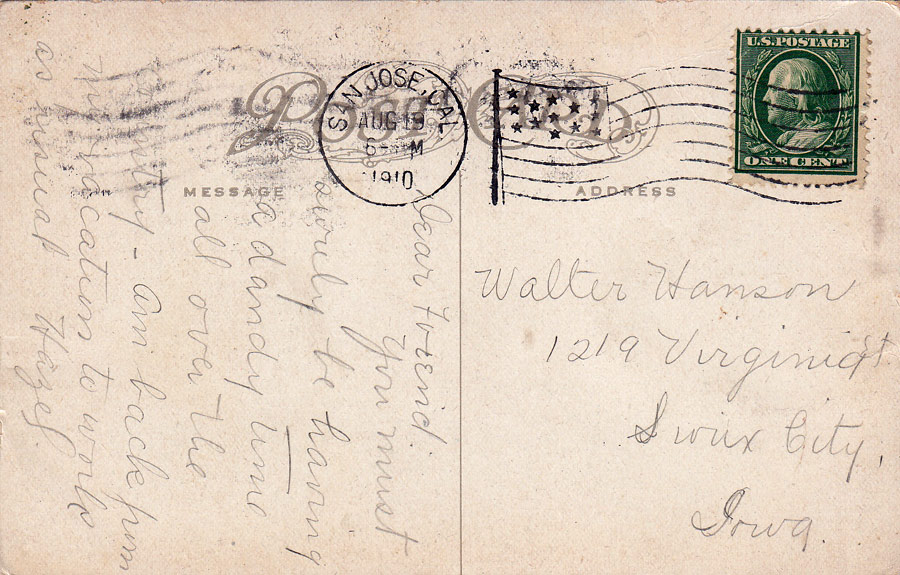 Post Card
SAN JOSE, CAL.
AUG 19
M
1910
U.S. POSTAGE
ONE CENT
MESSAGE
ADDRESS
Dear Friend.
You must
surely be having
a dandy time
all over the
country - am back from
my vacation to work
as usual Hazel
Walter Hanson
1219 Virginia St
Sioux City,
Iowa.